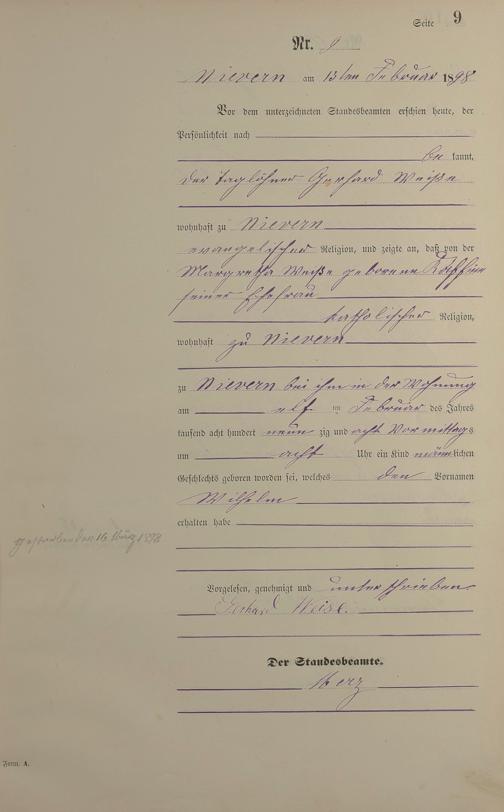 Seite 9
Nr. 9
Nievern am 13ten Februar 1898
Vor dem unterzeichneten Standesbeamten erschien heute, der
Persönlichkeit nach
be kannt,
der Taglöhner Gerhard Weiße
wohnhaft zu Nievern
evangelischer Religion, und zeigte an, daß von der
Margretha Weiße geborene
seiner Ehefrau
katholischer Religion,
wohnhaft zu Nievern
zu Nievern bei ihm in der Wohnung
am elf im Februar des Jahres
tausend acht hundert neun zig und acht Vormittags
um acht Uhr ein Kind männlichen
Geschlechts geboren worden sei, welches den Vornamen
Wilhelm
erhalten habe
gestorben den 16. März 1898
Vorgelesen, genehmigt und unterschrieben
Gerhard Weise.
Der Standesbeamte.
Merz
Form. A.